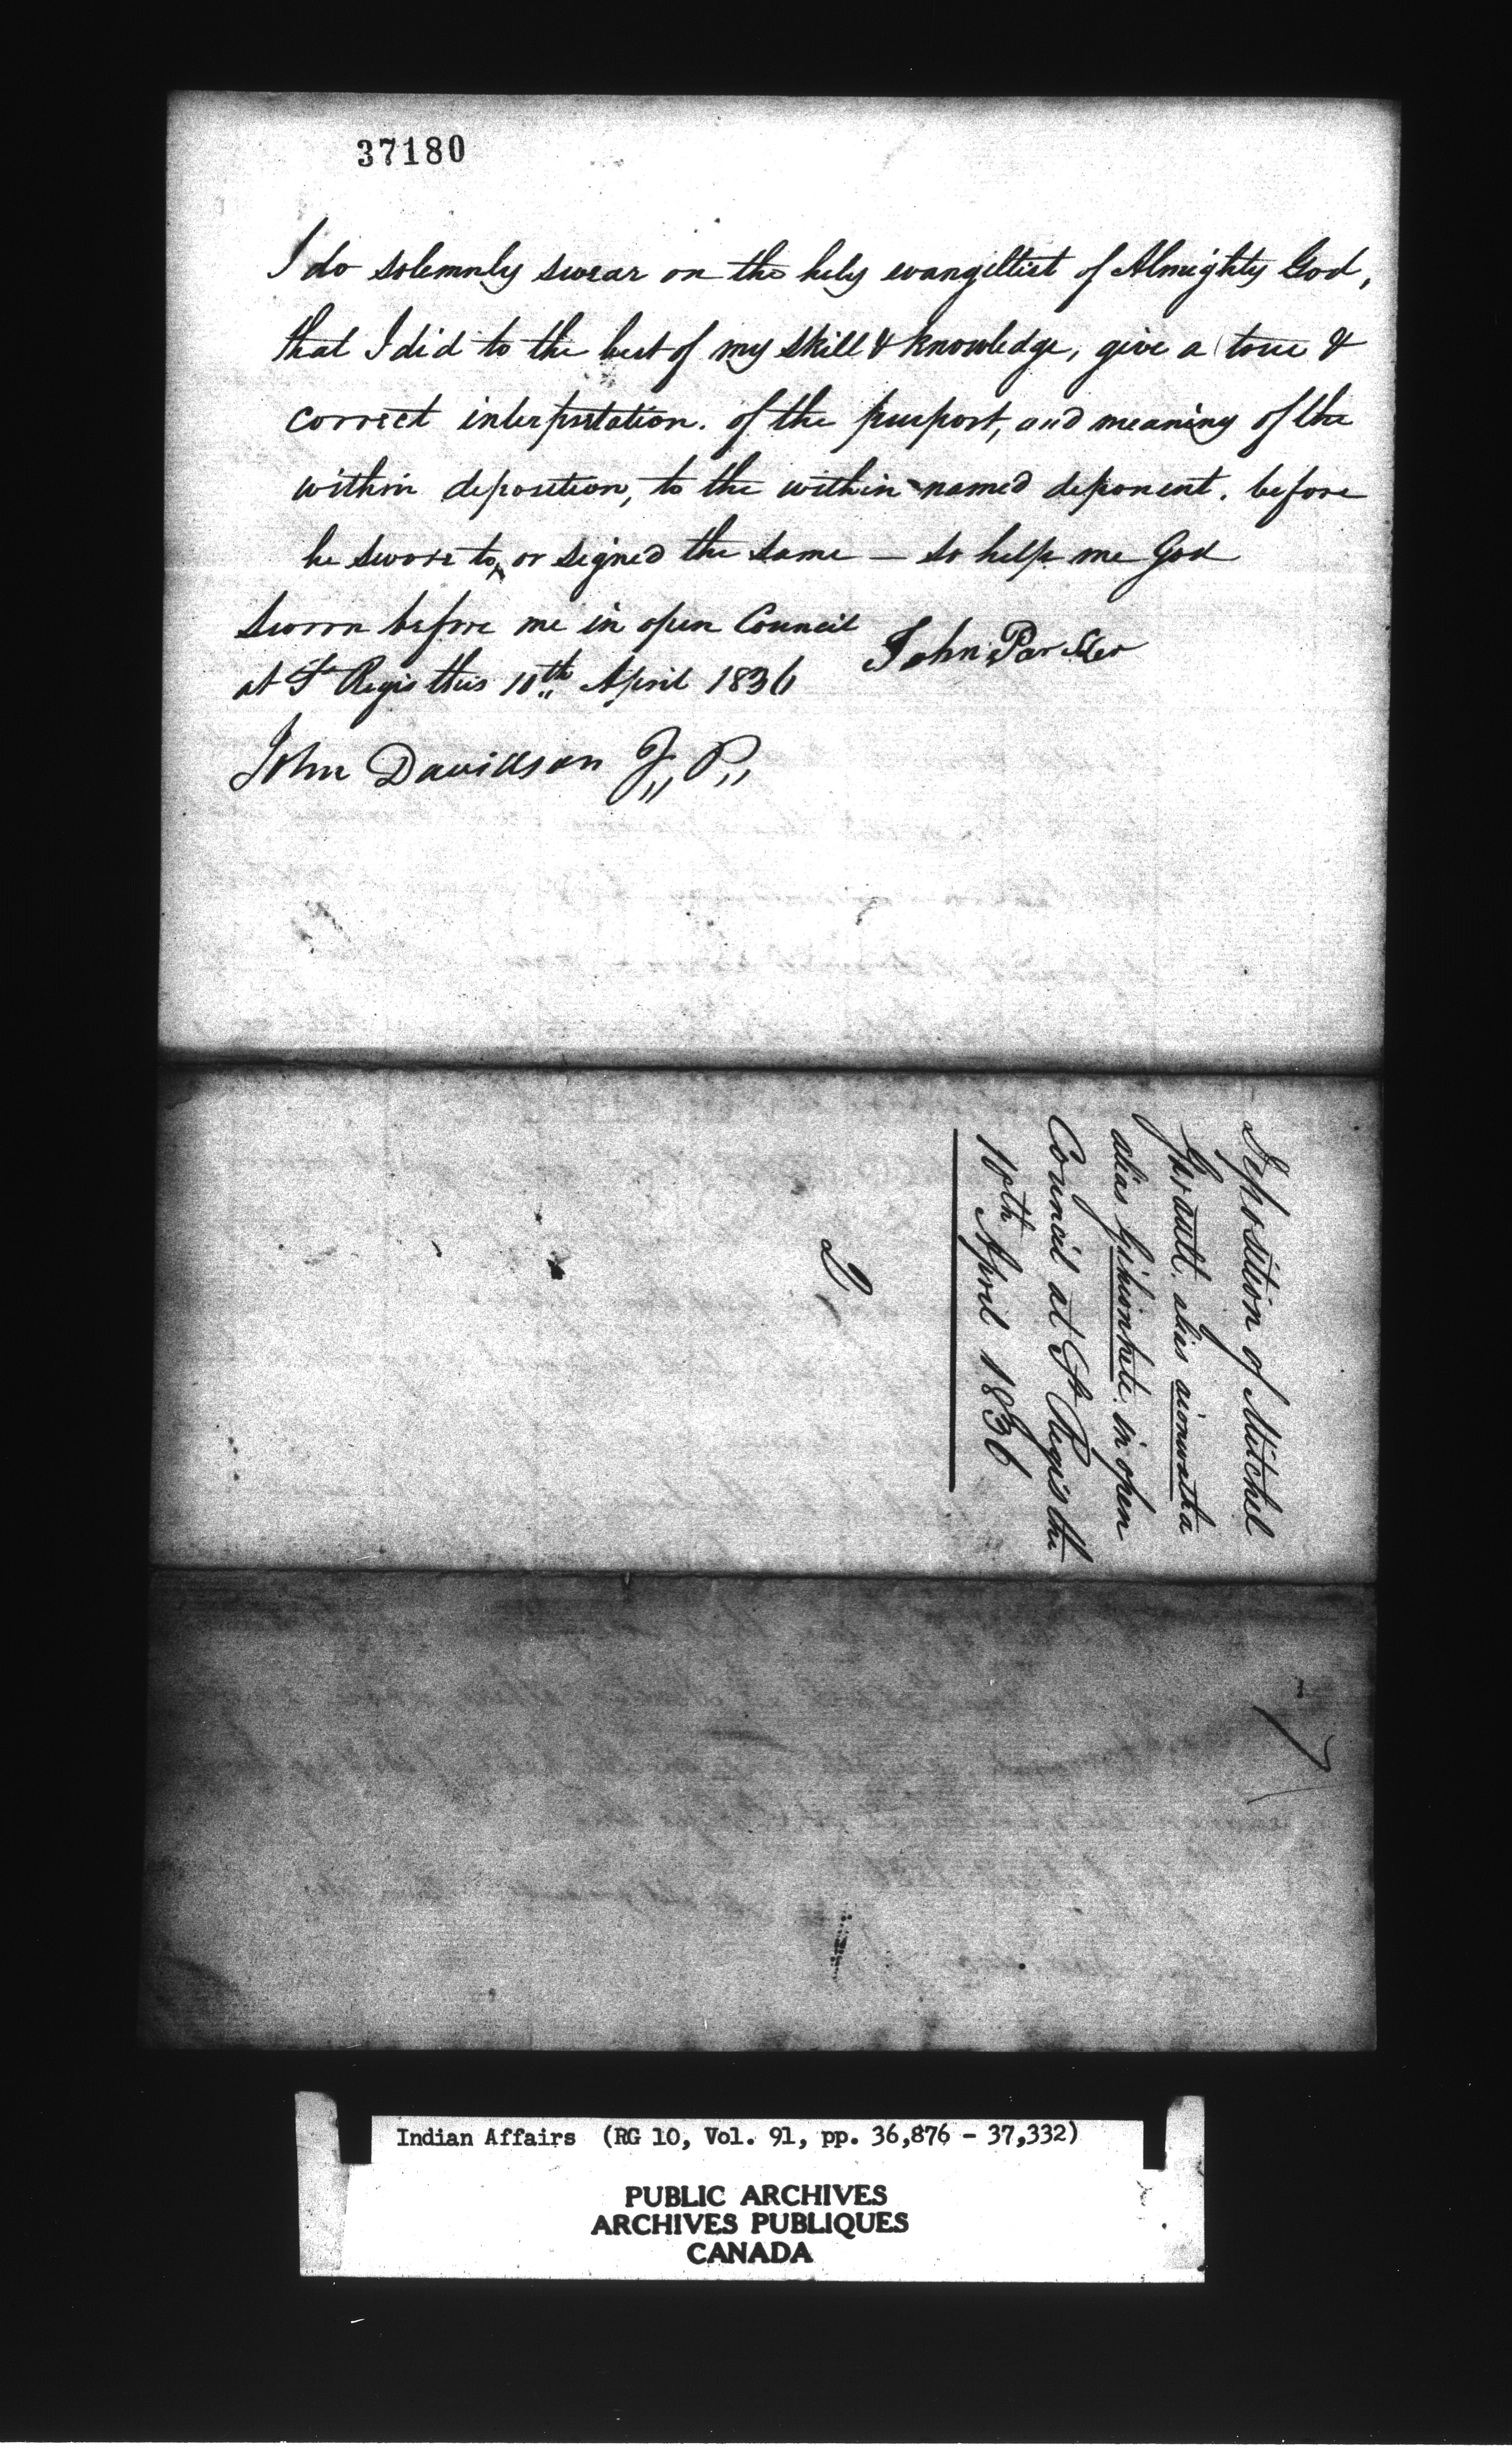 37180
I do solemnly swear on the holy evangeltist of Almighty God,
that I did to the best of my skill & knowledge, give a true &
correct interpretation. of the purport, and meaning of the
within deposition, to the within named deponent. before
he swore to, or signed the same — so help me God
Sworn before me in open Council
John Parker
at St Regis this 10th April 1836
John Davidson J,, P,,
Deposition of Mitchel
alias aionwatha
alias in open
Council at St Regis the
10th April 1836
D
Indian Affairs (RG 10, Vol. 91, pp. 36,876 - 37,332)
PUBLIC ARCHIVES
ARCHIVES PUBLIQUES
CANADA